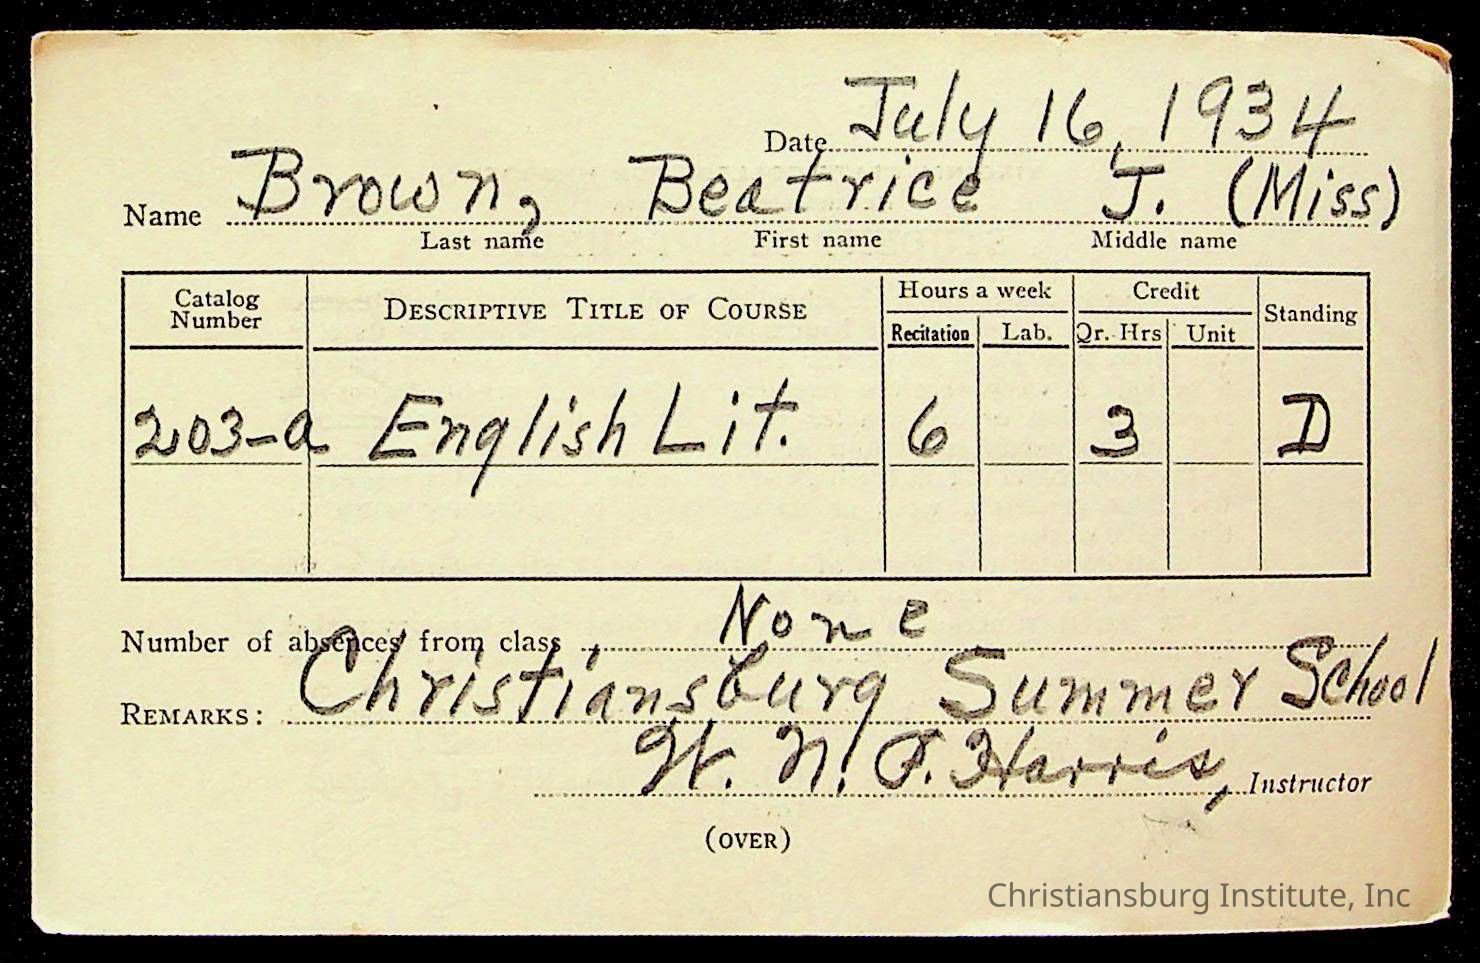 Date July 16, 1934
Name Brown, Beatrice J. (Miss)
Last name First name Middle name
Catalog Number DESCRIPTIVE TITLE OF COURSE Hours a week Credit Standing
Recitation Lab. Qr. Hrs Unit
203-a English Lit. 6 3 D
Number of absences from class None
REMARKS: Christiansburg Summer School
W. N. P. Harris, Instructor
(OVER)
Christiansburg Institute, Inc